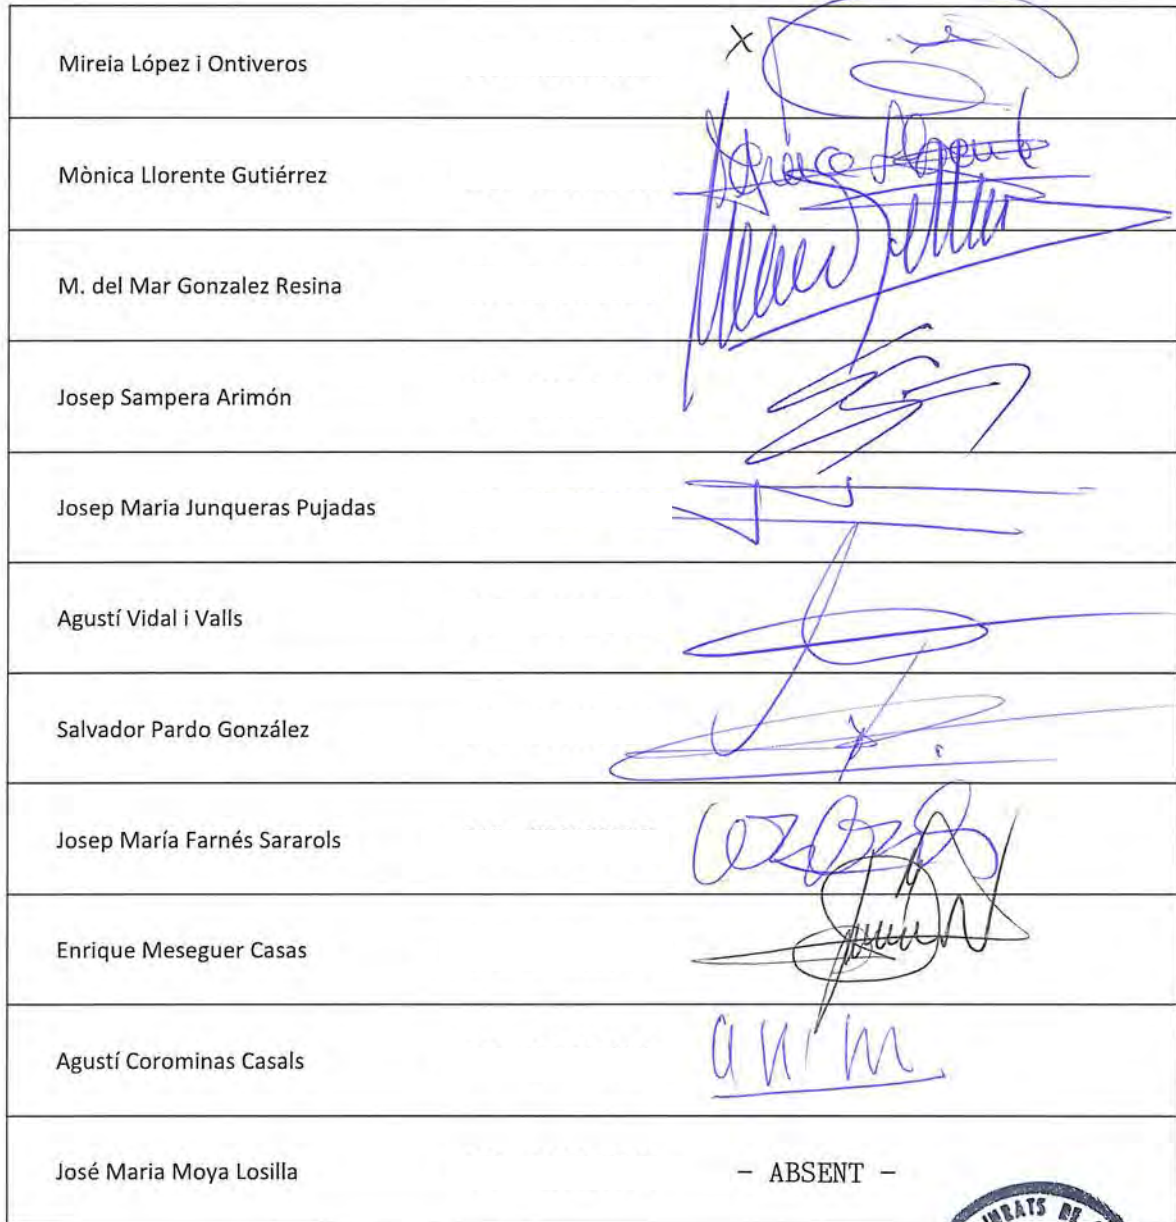 Mireia López i Ontiveros
X
Mònica Llorente Gutiérrez
M. del Mar Gonzalez Resina
Josep Sampera Arimón
Josep Maria Junqueras Pujadas
Agustí Vidal i Valls
Salvador Pardo González
Josep María Farnés Sararols
Enrique Meseguer Casas
Agustí Corominas Casals
José Maria Moya Losilla - ABSENT -